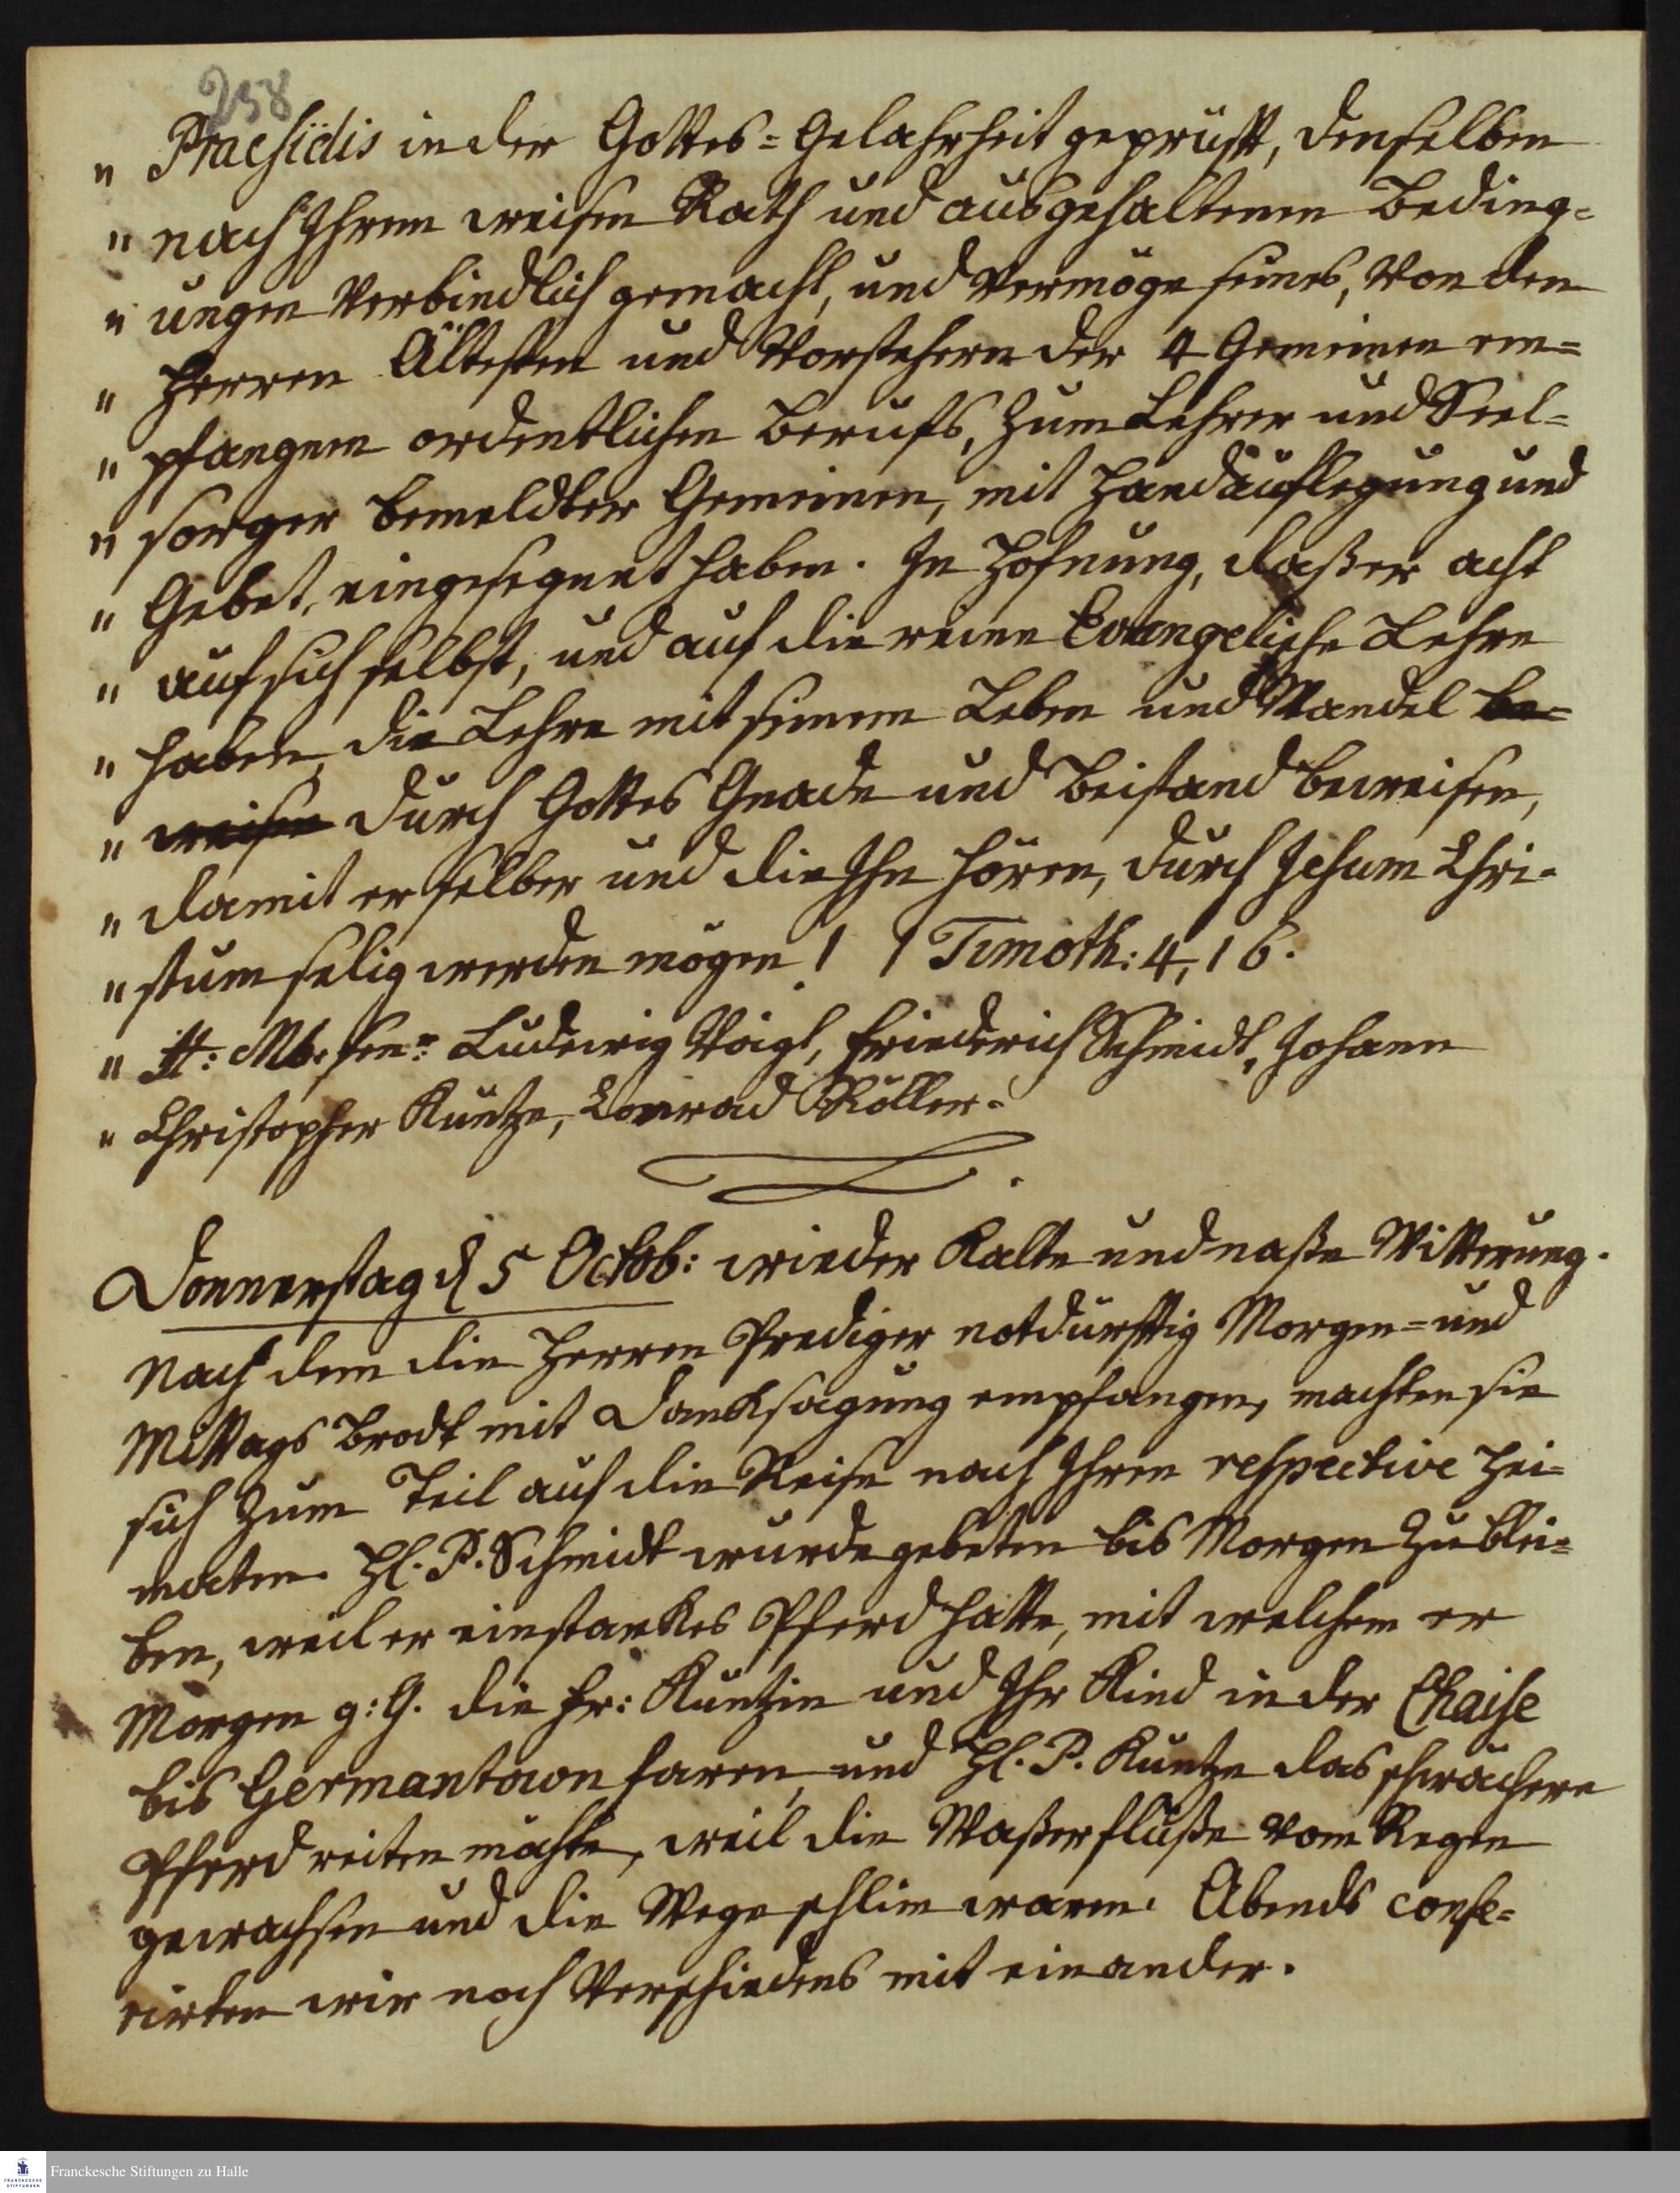 258
" Praesidis in der Gottes=Gelahrheit geprüft, denselben
" nach Ihrem weisen Rath und ausgehaltenen Beding=
" ungen verbindlich gemacht, und vermöge seines, von den
" Herren Ältesten und Vorstehern der 4 Gemeinen em=
" pfangnen ordentlichen Berufs, zum Lehrer und Seel=
" sorger bemeldter Gemeinen, mit Handauflegung und
" Gebet, eingesegnet haben. In Hofnung, daß er acht
" auf sich selbst, und auf die reine Evangelische Lehre
" haben, die Lehre mit seinem Leben und Wandel be=
" weisen durch Gottes Gnade und Beistand beweisen,
" damit er selber und die Ihn hören, durch Jesum Chri-
" stum selig werden mögen! 1 Timoth: 4, 16.
" H: Mb. senr: Ludewig Voigt, Friederich Schmidt, Johann
" Christopher Kuntze, Conrad Röller.
Donnerstag d 5 Octob: wieder Kalte und naße Witterung.
Nach dem die Herren Prediger notdürftig Morgen= und
Mittags Brodt mit Danksagung empfangen, machten sie
sich zum Teil auf die Reise nach Ihren respective Hei=
maten. H. P. Schmidt wurde gebeten bis Morgen zu blei=
ben, weil er ein starkes Pferd hatte, mit welchem er
Morgen g: G. die Fr: Kuntzin und Ihr Kind in der Chaise
bis Germantown faren, und H. P. Kuntze das schwächere
Pferd reiten mächte, weil die Waßerflüße vom Regen
gewachsen und die Wege schlim waren. Abends confe=
rirten wir noch Verschiedens mit einander.
FRANCKESCHE STIFTUNGEN
Franckesche Stiftungen zu Halle